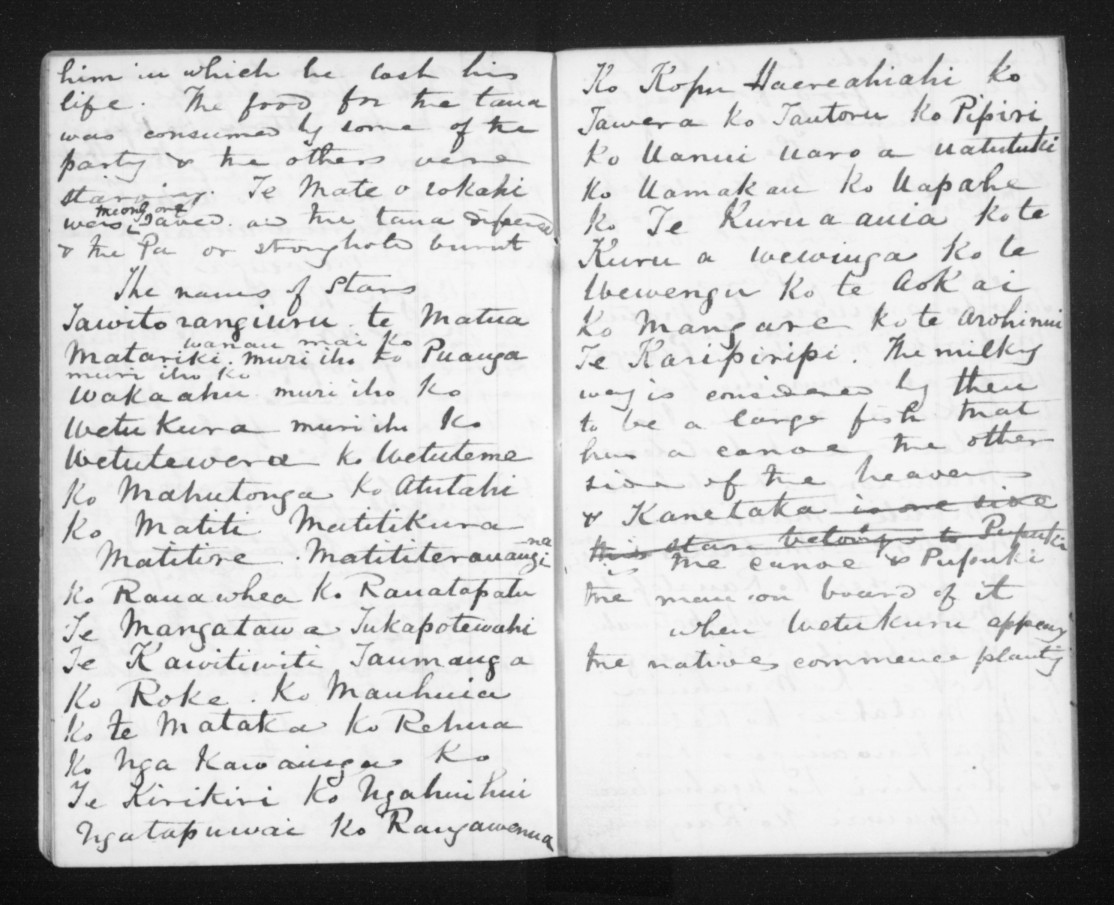 him in which he lost his
life. The food for the taua
was consumed by some of the
party & the others were
starving. Te Mate o rokahi
were saved and the taua
& the Pa or stronghold burnt
The names of Stars
Tawitorangiuru te Matua
wanau mai ko
Matariki. muri iho ko Puanga
muri iho ko
Wakaahu muri iho ko
Wetukura muri iho ko
Wetutewera ko Wetuteme
Ko Mahutonga ko Atutahi
Ko Matiti Matitikura
Matitire. Matititerauangi
Ko Rauawhea ko Rauatapatu
Te Mangatawa Tukapotewahi
Te Kawitiwiti Taumanga
Ko Roke. Ko Mauhuia
Ko te Mataka ko Rehua
Ko Nga Kawainga Ko
Te Kirikiri ko Ngahuihui
Ngatapuwai Ko Rangawenua
Ko Kopu Haereahiahi Ko
Tawera Ko Tautoru Ko Pipiri
Ko Uanui Uaroa Uatutuki
Ko Uamakau Ko Uapahe
Ko Te Kurua auia Ko te
Kuru a wewinga Ko te
Wewengu Ko te Aokai
Ko Mangare Ko te Arohinui
Te Karipiripi. The milky
way is considered by them
to be a large fish that
has a canoe the other
side of the heavens
& Kanetaka is one side
this stars belongs to Pipuki
is the canoe & Pufouki
the man on board of it
when Wetukuru appears
the natives commence planting